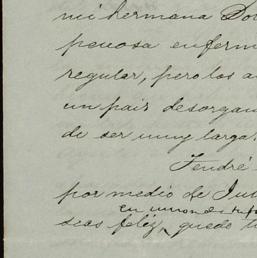 mi hermana Do
penosa enferm
regular, pero los a
un pais desorgan
de ser muy larga.
Tendré
por medio de Ju
en union de tu
seas feliz, quedo